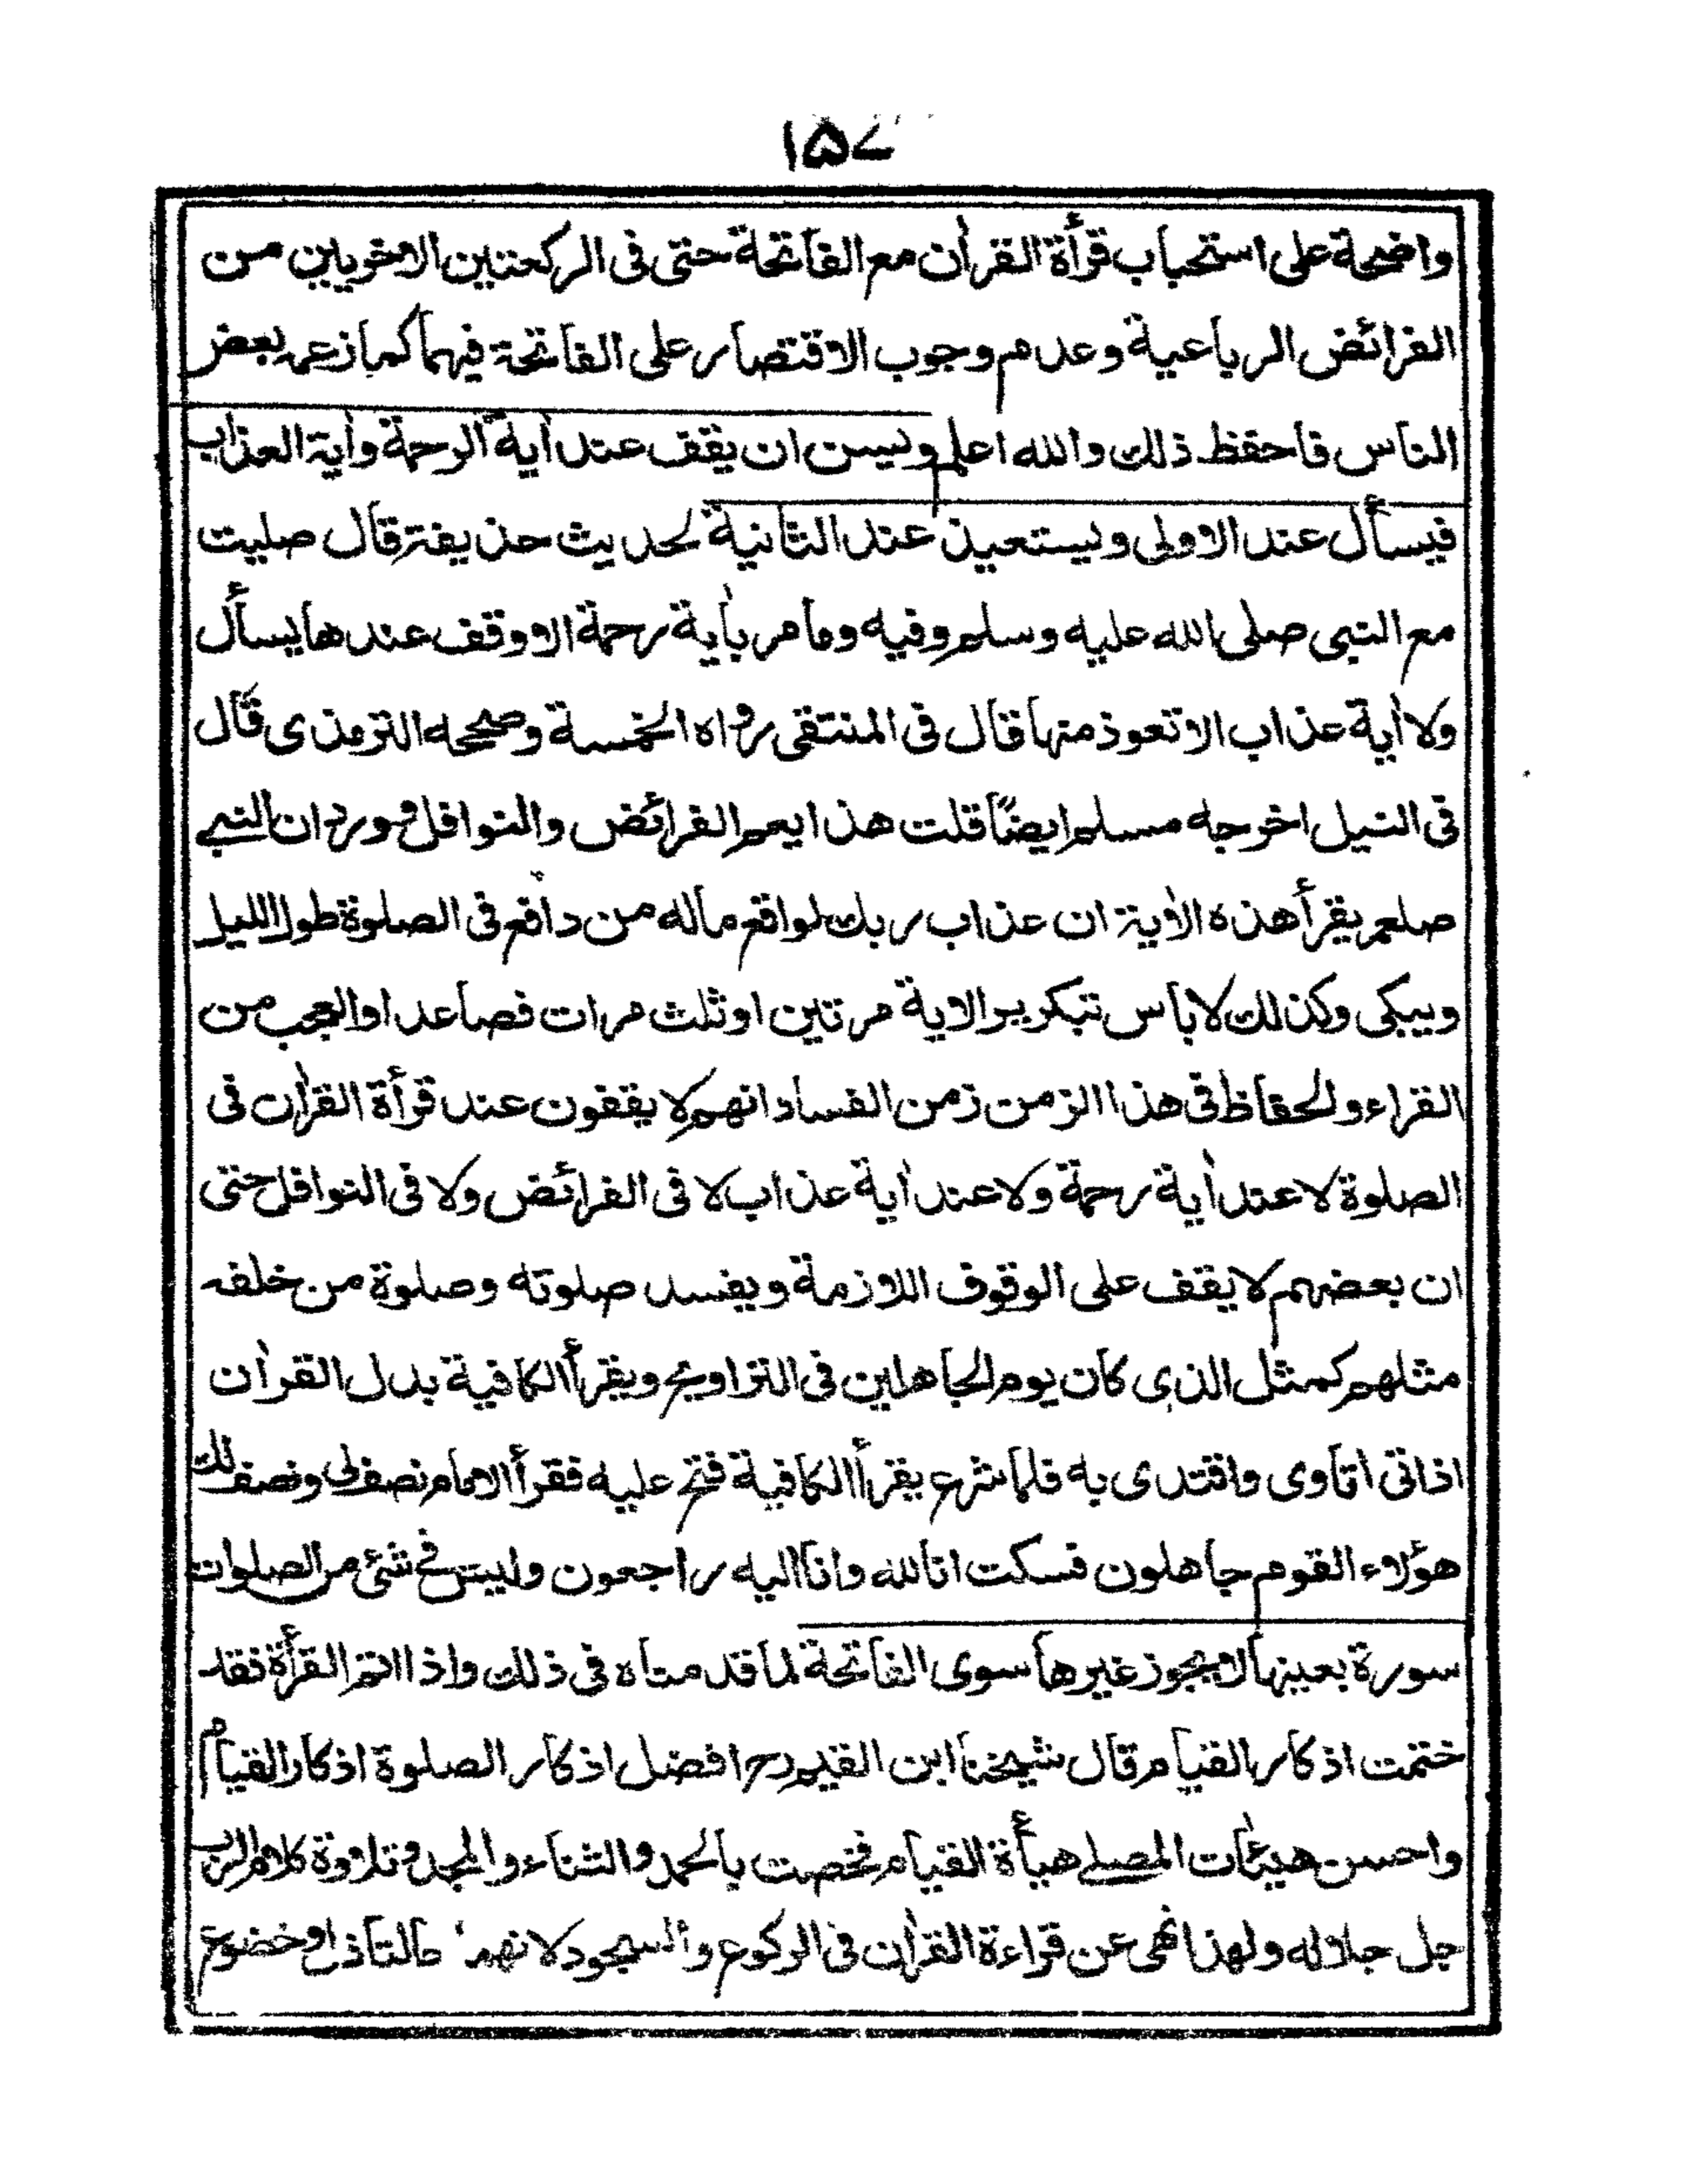 ١٥٧
واضحة على استحباب قرأة القراٰن مع الفاتحة حتى فى الركعتين الاخريين من
الفرائض الرباعية وعدم وجوب الاقتصار على الفاتحة فيهما كما زعمه بعض
الناس فاحفظ ذلك والله اعلم ويسن ان يقف عند اٰية الرحمة واٰية العذاب
فيسأل عند الاولى ويستعيذ عند الثانية لحديث حذيفة قال صليت
مع النبى صلى الله عليه وسلم وفيه وما مر باٰية رحمة الا وقف عندها يسأل
ولا اٰية عذاب الا تعوذ منها قال فى المنتقى رواه الخمسة وصححه الترمذى قال
فى النيل اخرجه مسلم ايضًا قلت هذا يعم الفرائض والنوافل وورد ان النبے
صلعم يقرأ هذه الاٰية ان عذاب ربك لواقع ماله من دافع فى الصلوة طول الليل
ويبكى وكذلك لا باس بتكرير الاية مرتين او ثلث مرات فصاعدا والعجب من
القراء والحفاظ فى هذا الزمن زمن الفساد انهم لا يقفون عند قرأة القراٰن فى
الصلوة لا عند اٰية رحمة ولا عند اٰية عذاب لا فى الفرائض ولا فى النوافل حتى
ان بعضهم لا يقف على الوقوف اللازمة ويفسد صلوته وصلوة من خلفه
مثلهم كمثل الذى كان يوم الجاهلين فى التراويح ويقرأ الكافية بدل القراٰن
اذ اتى اتاوى واقتدى به فلما شرع يقرأ الكافية فتح عليه فقرأ الامام نصف لى ونصف لك
هؤلاء القوم جاهلون فسكت انا لله وانا اليه راجعون وليس فے شئ من الصلوات
سورة بعينها لا يجوز غيرها سوى الفاتحة لما قدمناه فى ذلك واذا اتم القرأة فقد
ختمت اذكار القيام قال شيخنا ابن القيم رح افضل اذكار الصلوة اذكار القيام
واحسن هيئات المصلے هيأة القيام فخصت بالحمد والثناء والمجد وتلاوة كلام الرب
جل جلاله ولهذا نهى عن قراءة القراٰن فى الركوع والسجود لانهما حالتا ذل وخضوع